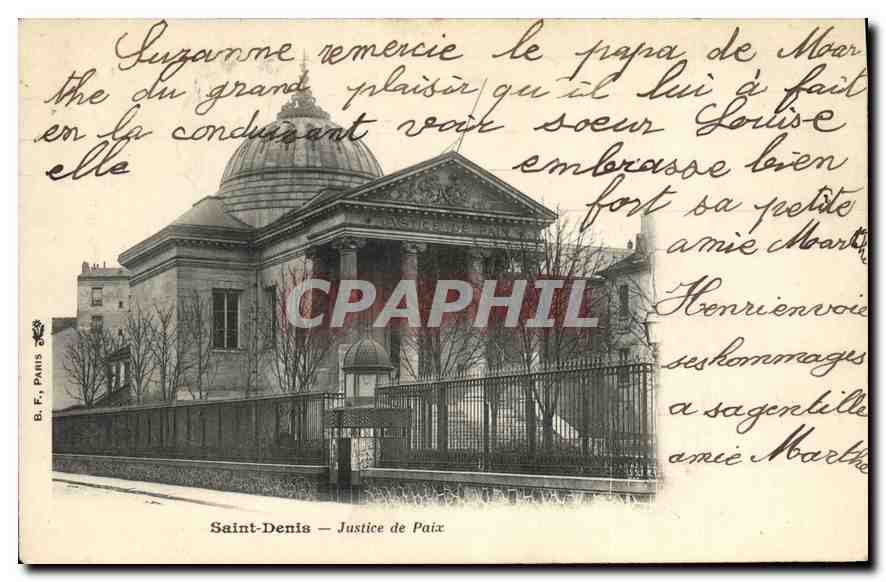 Suzanne remercie le papa de Mar
the du grand plaisir qu il lui à fait
en la conduisant voir soeur Louise
elle embrasse bien
fort sa petite
amie Marthe
Henri envoie
ses hommages
a sa gentille
amie Marthe
JUSTICE DE PAIX
CPARPHIL
B. F., PARIS
Saint-Denis – Justice de Paix